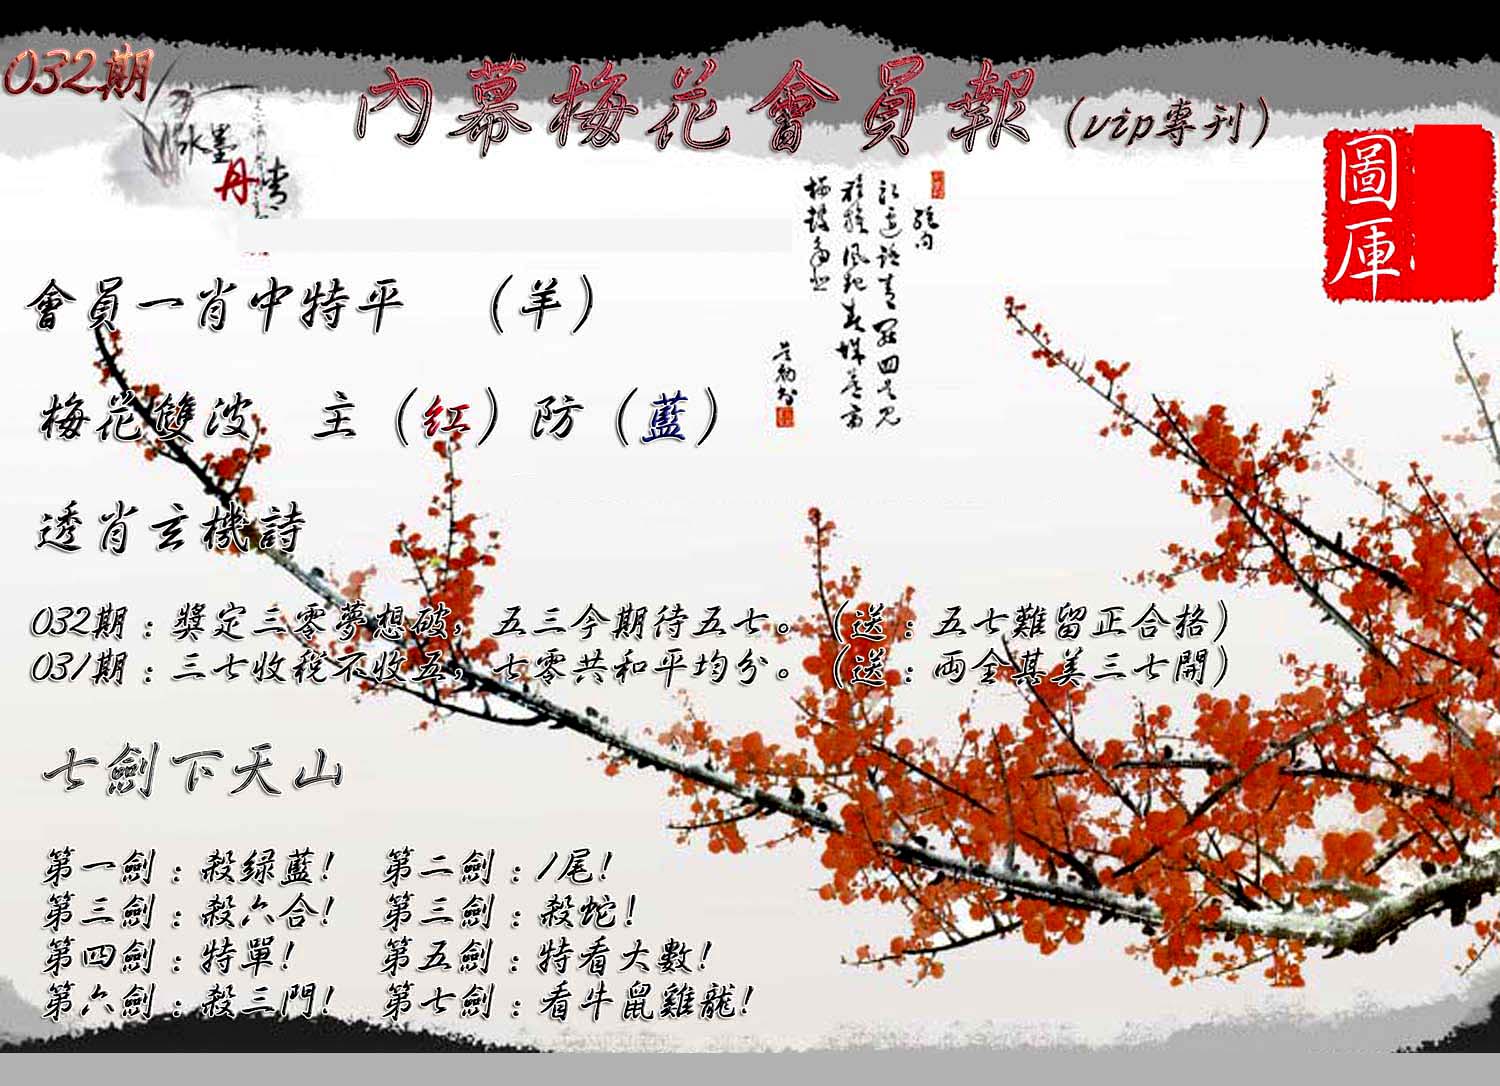 032期
內幕梅花會員報（vip專刊）
水墨
丹青
圖庫
會員一肖中特平 （羊）
梅花雙波 主（紅）防（藍）
透肖玄機詩
032期：獎定三零夢想破，五三今期待五七。（送：五七難留正合格）
031期：三七收稅不收五，七零共和平均分。（送：兩全其美三七開）
七劍下天山
第一劍：殺绿藍！ 第二劍：1尾！
第三劍：殺六合！ 第三劍：殺蛇！
第四劍：特單！ 第五劍：特看大數！
第六劍：殺三門！ 第七劍：看牛鼠雞龍！